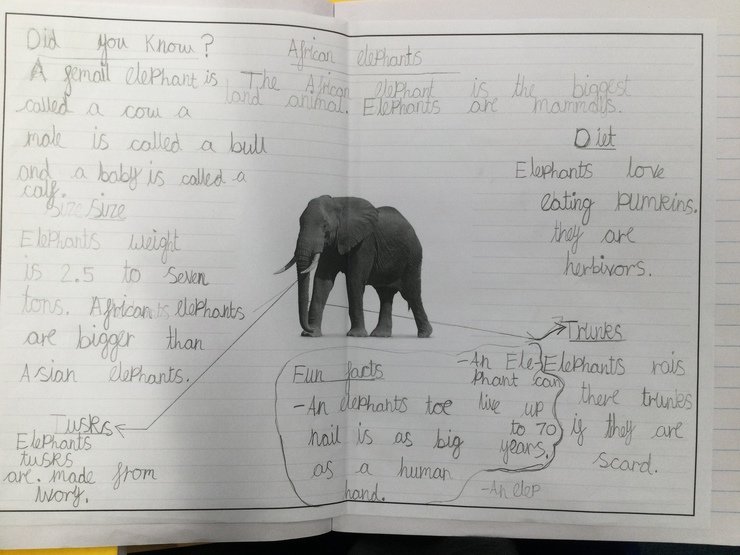 Did you Know?
A femail elephant is
called a cow a
male is called a bull
and a baby is called a
calf.
African elephants
The African elephant is the biggest
land animal. Elephants are mammals.
Diet
Elephants love
eating pumkins.
they are
herbivors.
Size Size
Elephants weight
is 2.5 to seven
tons. African elephants
are bigger than
Asian elephants.
Tusks
Elephants
tusks
are made from
Ivory.
Fun facts
-An elephants toe
nail is as big
as a human
hand.
-An Ele-
phant can
live up
to 70
years.
-An elep
Trunks
Elephants rais
there trunks
if they are
scard.